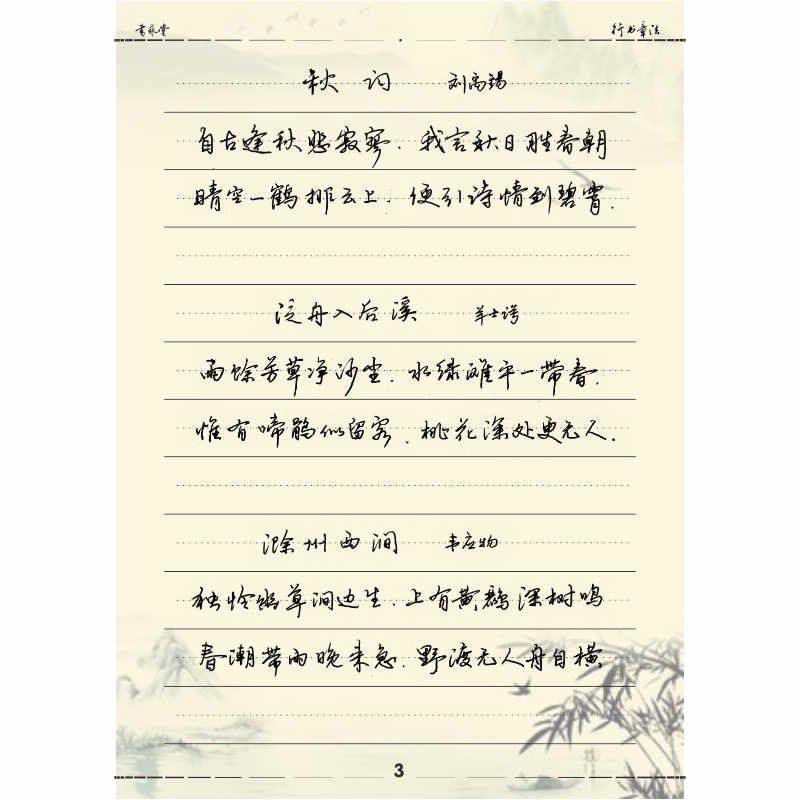 书艺堂 行书章法
秋词 刘禹锡
自古逢秋悲寂寥.我言秋日胜春朝
晴空一鹤排云上.便引诗情到碧霄.
泛舟入后溪 羊士谔
雨馀芳草净沙尘.水绿滩平一带春.
惟有啼鹃似留客.桃花深处更无人.
滁州西涧 韦应物
独怜幽草涧边生.上有黄鹂深树鸣
春潮带雨晚来急.野渡无人舟自横
3